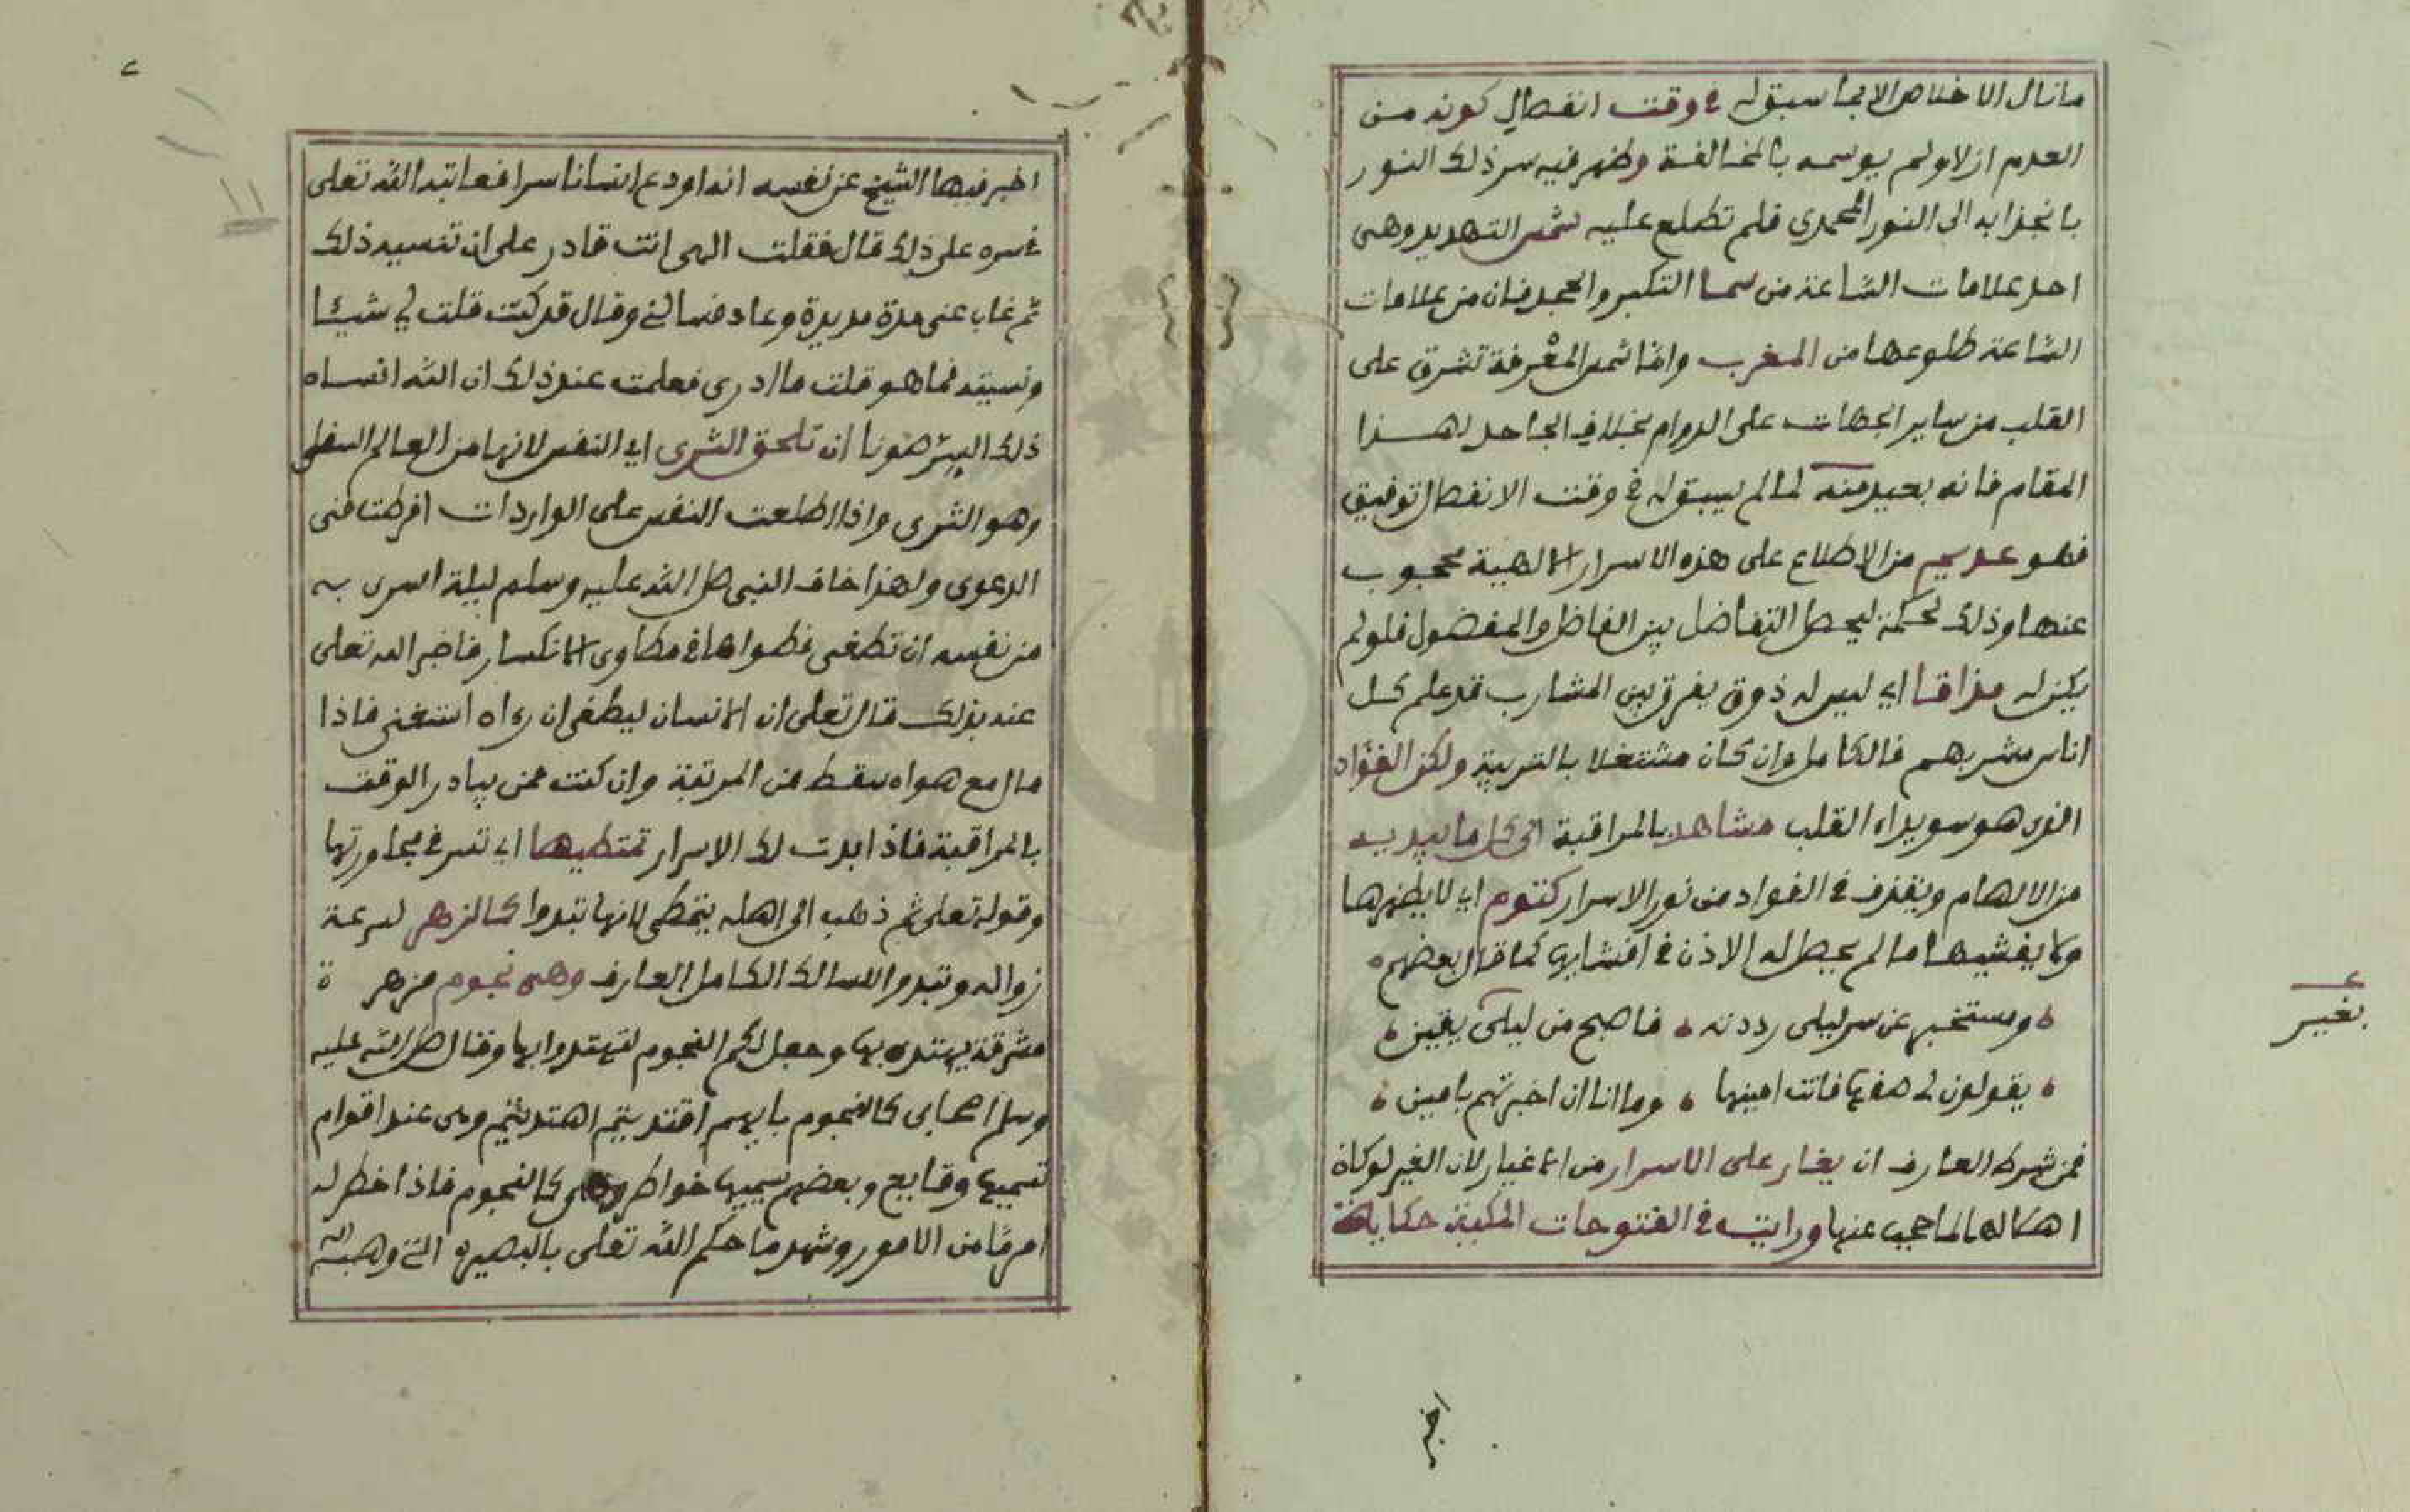 ما نال الاختاص الا بما سبق له في وقت انفصال كونه من
العدم ازلا ولم يوسمه بالمخالفة وظهر فيه سر ذلك النور
بانجذابه الى النور المحمدي فلم تطلع عليه شمس التهديد وهى
احد علامات الساعة من سما التكبر والجحد فان من علامات
الساعة طلوعها من المغرب وانما شمس المعرفة تشرق على
القلب من ساير الجهات على الدوام بخلاف الجاحد لهذا
المقام فانه بعيد منه لما لم يسبق له في وقت الانفصال توفيق
فهو عديم من الاطلاع على هذه الاسرار الالهية محجوب
عنها وذلك لحكمة ليحصل التفاضل بين الفاضل والمفضول فلو لم
يكن له مذاقا اي ليس له ذوق يفرق بين المشارب قد علم كل
اناس مشربهم فالكامل وان كان مشتغلا بالتربية ولكن الفؤاد
الذى هو سويداء القلب مشاهد بالمراقبة الى كل ما يبديه
من الالهام ويقذف في الفواد من نور الاسرار كتوم اي لا يظهرها
ولا يفشيها ما لم يحصل له الاذن في افشايها كما قال بعضهم
ومستخبر عن سر ليلى رددته فاصبح من ليلى يقين
يقولون لى صفها فانت امينها وما انا ان اخبرتهم بامين
فمن شرط العارف ان يغار على الاسرار من الاغيار لان الغير لو كان
اهلا لها لما حجب عنها ورايت في الفتوحات المكية حكاية
بغير
اخبر
اخبر فيها الشيخ عن نفسه انه اودع انسانا سرا فعاتبه الله تعلى
في سره على ذلك قال فقلت الهى انت قادر على ان تنسيه ذلك
ثم غاب عنى مدة مديدة وعاد فسالنى وقال قد كنت قلت لي شيئا
ونسيته فما هو قلت ما ادرى فعلمت عند ذلك ان الله انساه
ذلك السر صونا ان تلحق الثرى اي النفس لانها من العالم السفلى
وهو الثرى واذا اطلعت النفس على الواردات افرطت فى
الدعوى ولهذا خاف النبى صلى الله عليه وسلم ليلة اسرى به
من نفسه ان تطغى فطواها في مطاوى الانكسار فاخبر الله تعلى
عنه بذلك قال تعلى ان الانسان ليطغى ان راه استغنى فاذا
مال مع هواه سقط من المرتبة وان كنت ممن يبادر الوقت
بالمراقبة فاذا ابدت لك الاسرار تمتطيها اي تسر في مجاورتها
وقوله تعلى ثم ذهب الى اهله يتمطى لانها تبدوا كالزهر لسرعة
زواله وتبدو اللسالك الكامل العارف وهى نجوم مزهرة
مشرقة يهتدى بها وجعل لكم النجوم لتهتدوا بها وقال صلى الله عليه
وسلم اصحابى كالنجوم بايهم اقتديتم اهتديتم وهى عند اقوام
تسميها وقايع وبعضهم يسميها خواطر وهى كالنجوم فاذا خطر له
امر ما من الامور وشهد ما حكم الله تعلى بالبصيرة التي وهبه